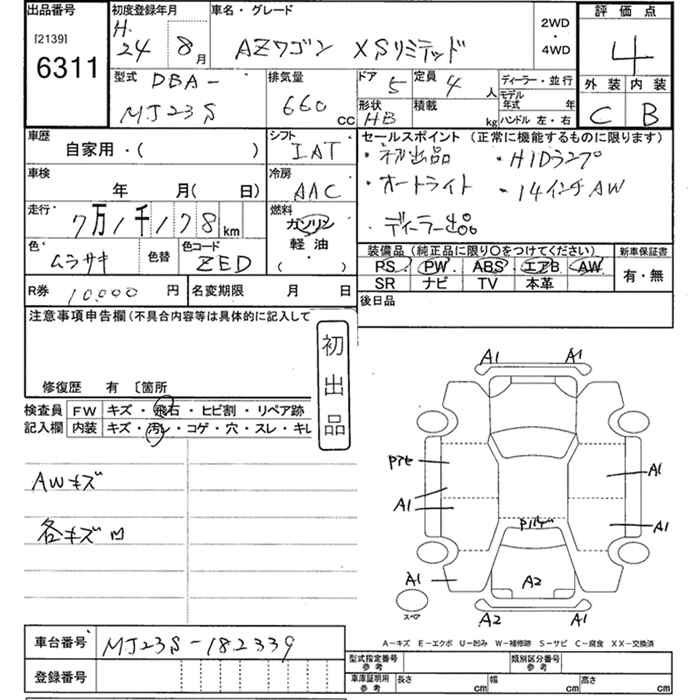 出品番号
[2139]
6311
初度登録年月
H.
24 8月
車名・グレード
AZワゴン XSリミテッド
2WD
・
4WD
評価点
4
外装 内装
C B
型式 DBA-
MJ23S
排気量
660 CC
ドア 5 定員 4 人
形状 HB 積載 kg
ディーラー・並行
モデル
年式 年
ハンドル 左・右
車歴
自家用・( )
シフト
IAT
車検
年 月( 日)
冷房
AAC
走行
7万1千178 km
燃料
ガソリン
軽油
( ・ )
色
ムラサキ
色替
色コード
ZED
R券 10,000 円
名変期限 月 日
セールスポイント (正常に機能するものに限ります)
・初出品 ・HIDランプ
・オートライト ・14インチAW
・ディーラー出品
装備品 (純正品に限り○をつけてください)
PS PW ABS エアB AW
SR ナビ TV 本革
新車保証書
有・無
後日品
注意事項申告欄 (不具合内容等は具体的に記入して
修復歴 有 〔箇所
初出品
検査員
記入欄
FW キズ・飛石・ヒビ割・リペア跡
内装 キズ・汚レ・コゲ・穴・スレ・キレ
AWキズ
各キズ凹
A1 A1
Pアセ
A1
A1
A1
A1
A1
A2
A2 A1
スペア
A-キズ E-エクボ U-凹み W-補修跡 S-サビ C-腐食 XX-交換済
車台番号 MJ23S-182339
登録番号
型式指定番号
参考
類別区分番号
参考
車庫証明用
参考
長さ cm 幅 cm 高さ cm